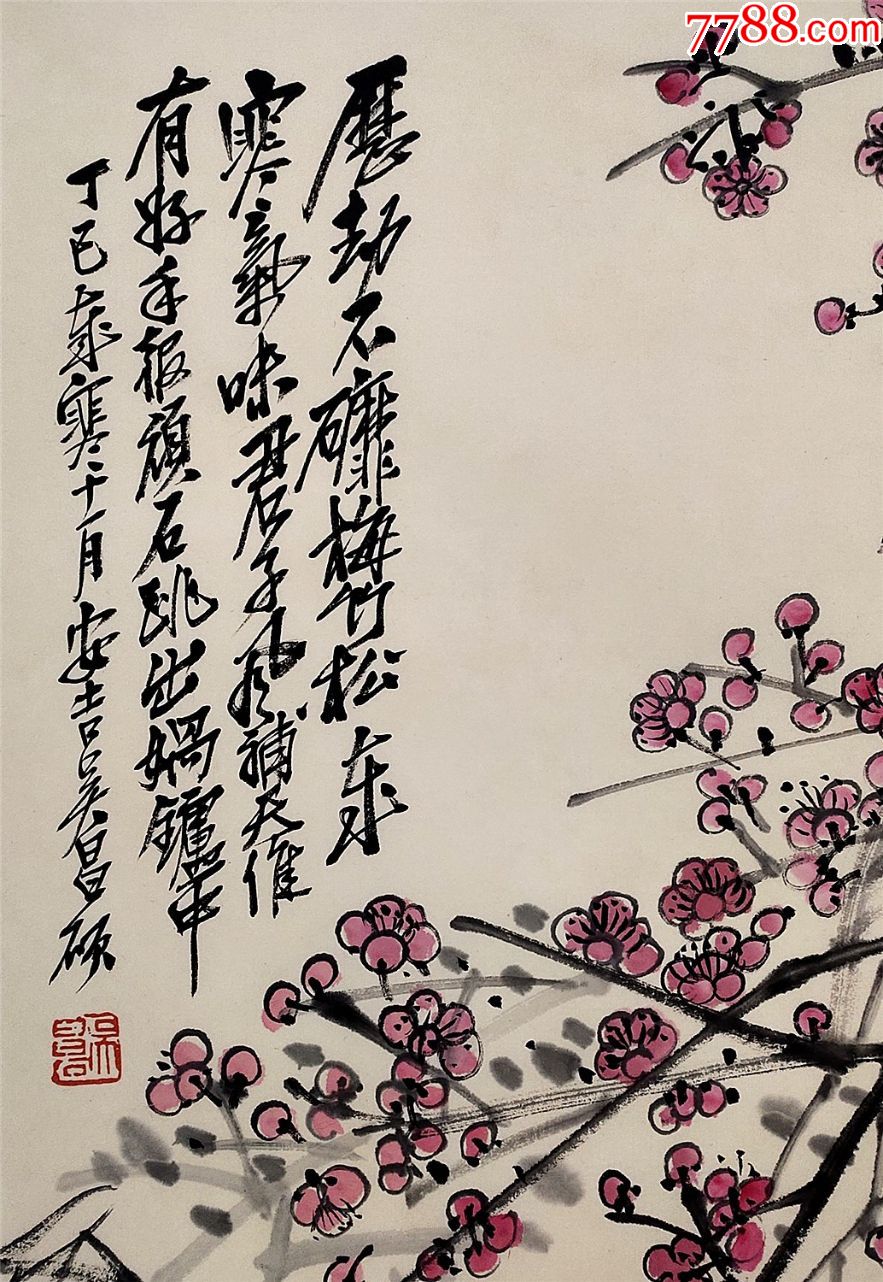 7788.com
歷劫不磨梅竹松歲
寒氣味君子風補天惟
有好手報頑石跳出媧鑪中
丁巳歲寒十一月安吉吳昌碩